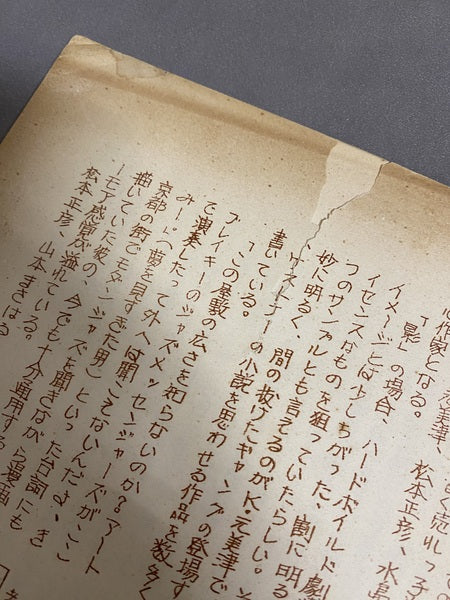 さく売れっ子
元美津、松本正彦、水島
作家となる。
「影」の場合、ハードボイルド劇
イメージとは少しちがった、劇に明る
イセンスなものを狙っていたらしい。そ
つのサンシャルとも言えるのがK・元美津で
妙に明るく、間の抜けたギャングの登場す
、ケストナーの小説を思わせる作品を数多く
書いている。
「この屋敷の広さを知らないのか？アート
ブレイキーのジャズメッセンジャーズが、ここ
で演奏したって外人は聞こそないんだよ、き
みー」（影を見すぎた男）といった台詞にも
京都の街でモダンジャズを聞きながら漫画
描いていた彼の、今でも十分通用する
ーモア感覚が溢れている。
松本正彦、山本まさはる